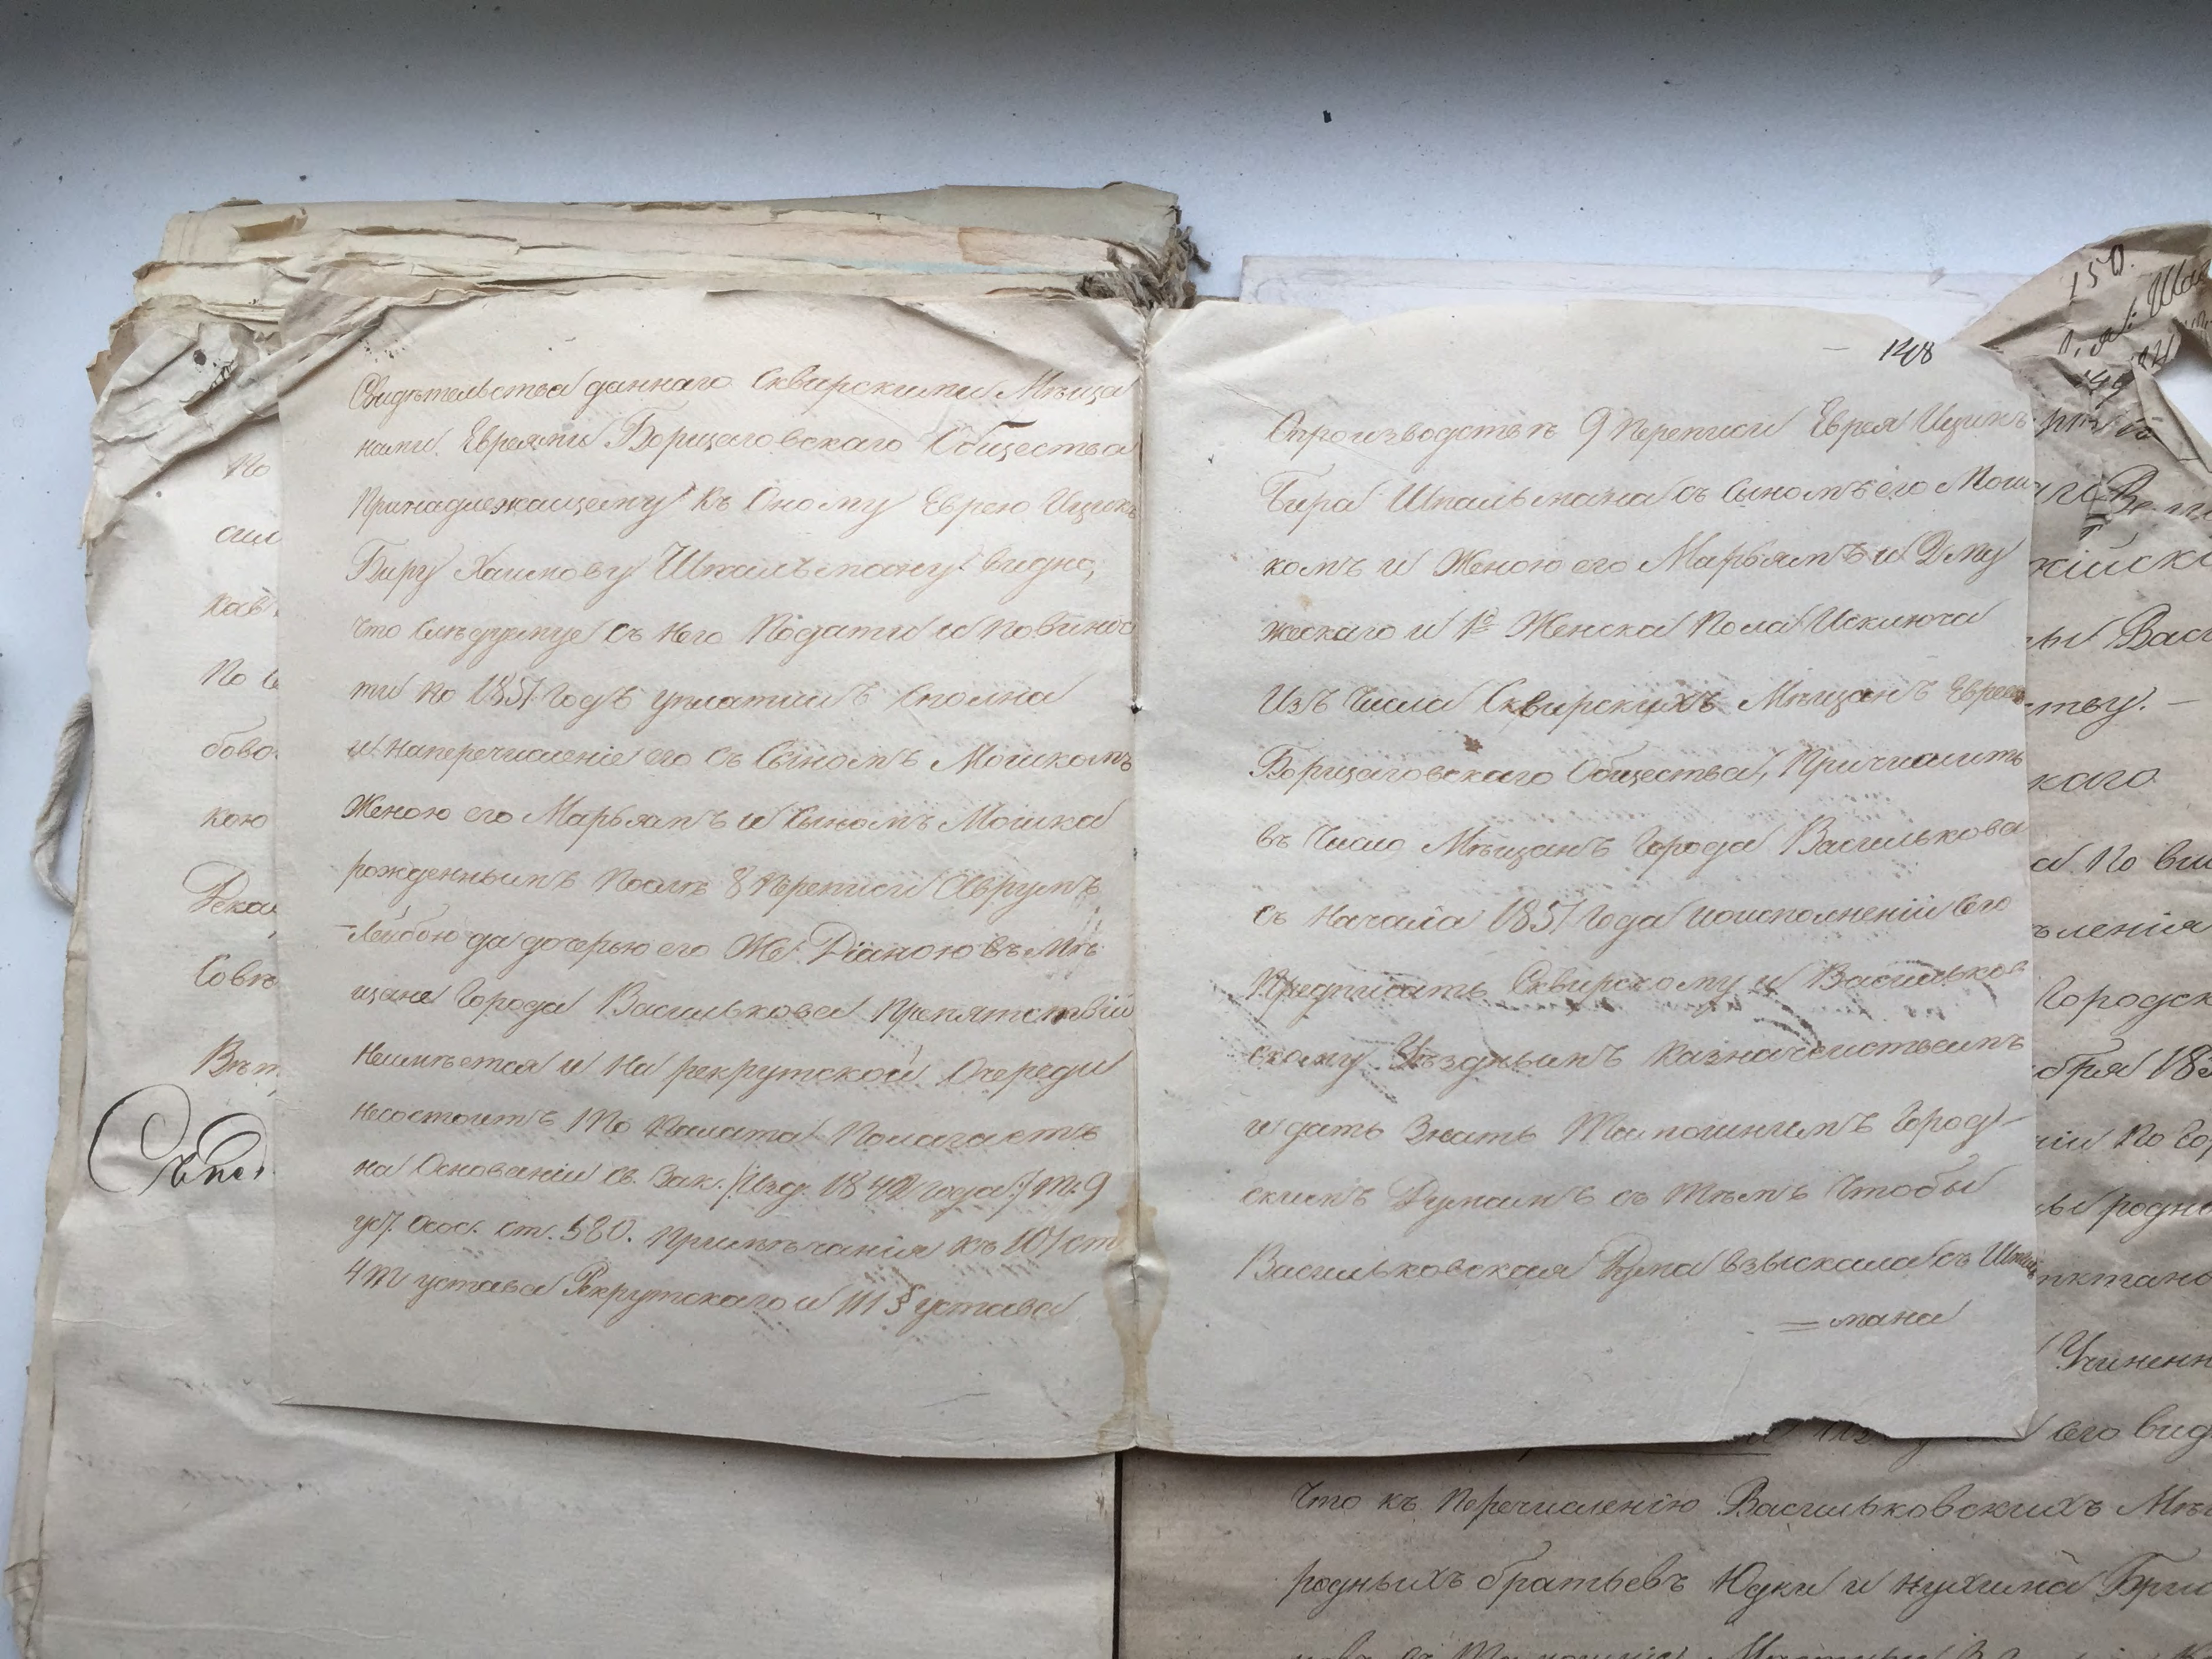 Свидѣтельства даннаго Сквирскими Мѣща
нами Евреями Борщаговскаго Общества
Принадлежащему къ Оному Еврею Ицокъ
Беру Хаимову Шпильману видно,
что слѣдуемые съ него Подати и повинос
ти по 1851 Годъ уплатилъ сполна
и наперечисленіе его съ Сыномъ Мошкомъ
Женою его Марьямъ и Сыномъ Мошка
рожденнымъ послѣ 8 переписи Аврумъ
Лейбою да дочерью его Же Діаною въ Мѣ
щане Города Василькова препятствій
неимѣется и на рекрутской Очереди
несостоитъ То Палата Полагаетъ
на Основаніи св. Зак. /:Изд. 1842 года:/ Т. 9
уст. Осос. ст. 580. примѣчанія къ 101 ст
4 т устава Рекрутскаго и 111 § устава
148
Опроизводствѣ 9 переписи Еврея Ицикъ
Бера Шпильмана съ Сыномъ его Мош
комъ и Женою его Марьямъ и 2 му
жескаго и 1й Женска Пола Исключа
Изъ Числа Сквирскихъ Мѣщанъ Евреевъ
Борщаговскаго Общества, Причислить
въ Число Мѣщанъ Города Василькова
съ Начала 1851 Года и о исполненіи сего
Предписать Сквирскому и Васильков
скому Уѣзднымъ Казначействамъ
и дать Знать Тамошнимъ Город
скимъ Думамъ съ тѣмъ Чтобы
Васильковская Дума взыскала съ Шпиль
= мана
150.
По
каб
По
бово
кою
Дека
Совѣ
каго
Городск
его вид
Что къ Перечисленію Васильковскихъ Мѣщ
родныхъ братьевъ Юдки и Нухима Бри